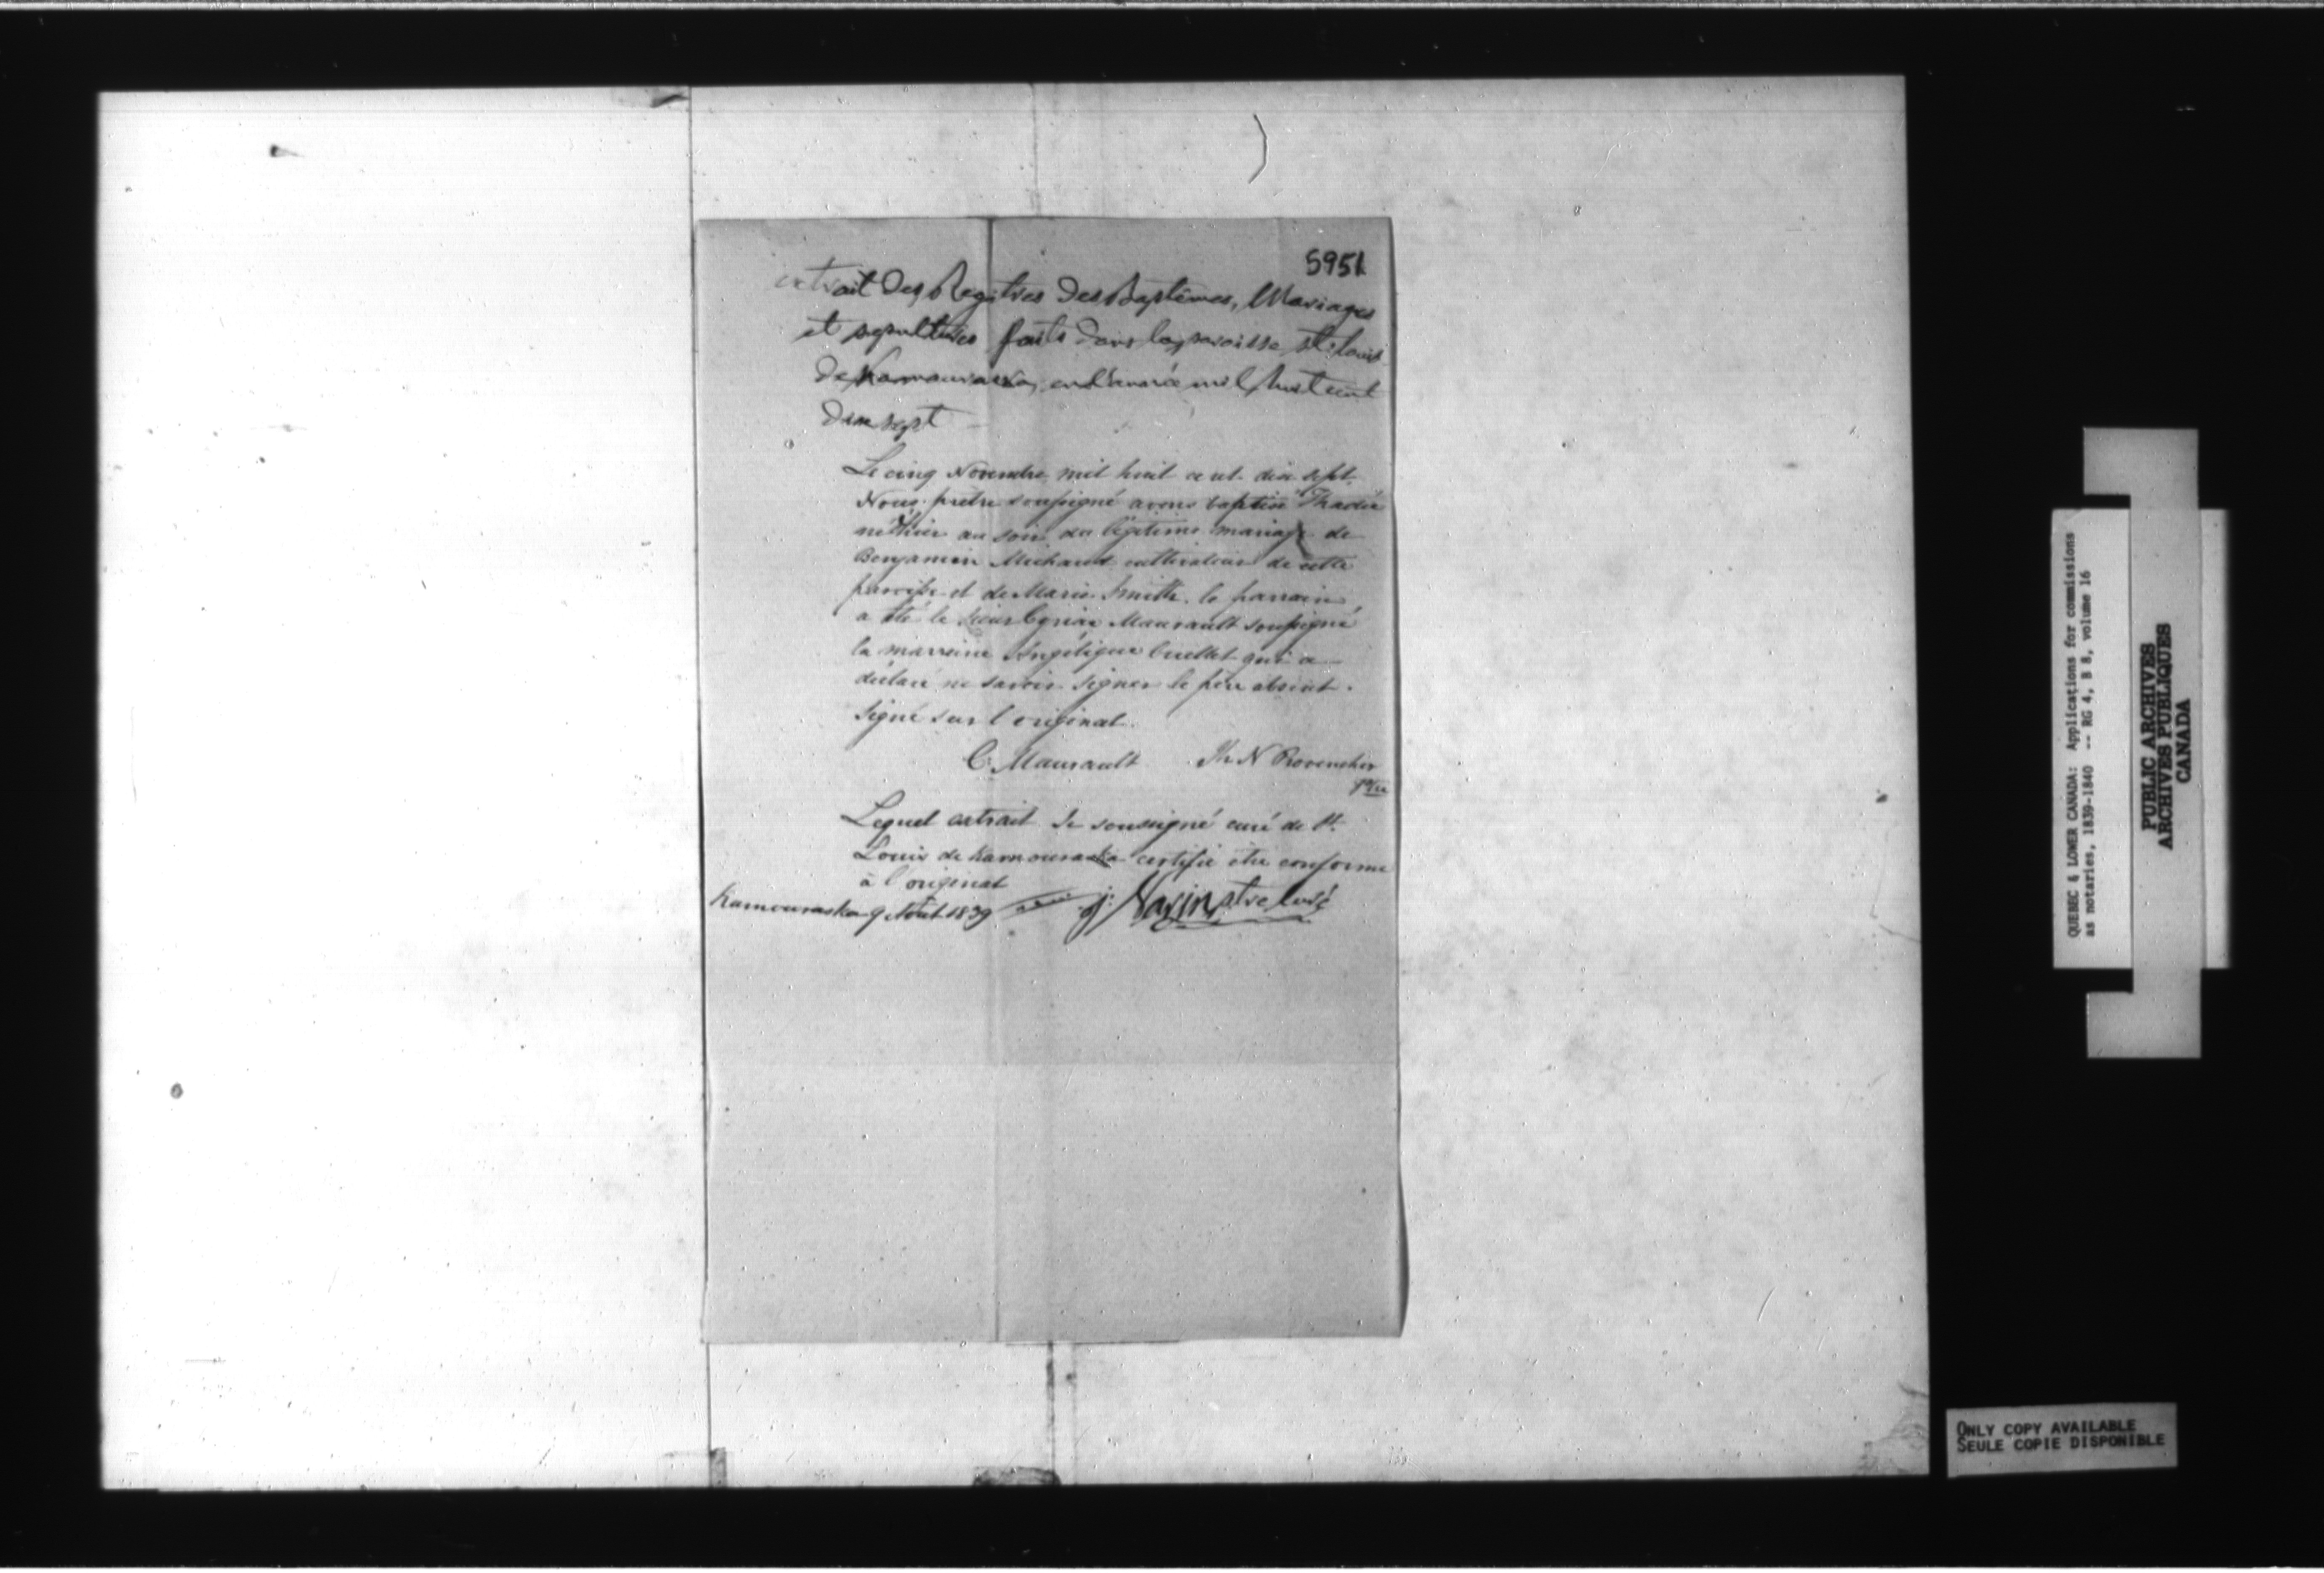 5951
extrait des Registres des Baptêmes, Mariages
et sepultures faits dans la paroisse St. Louis
de Kamouraska, en l'année mil huit cent
dix sept
Le cinq Novembre mil huit cent dix sept
Nous prêtre soussigné avons baptisé Thadée
né hier au soir du légitime mariage de
Benjamin Michaud cultivateur de cette
paroisse et de Marie Smith. le parrain
a été le Sieur Cyriac Maurault soussigné
la marraine Angélique Ouellet qui a
déclaré ne savoir signer le père absent.
Signé sur l original.
C. Maurault J. N Provencher
Ptre
Lequel extrait Je soussigné curé de St.
Louis de Kamouraska certifie être conforme
à l original
Kamouraska 9 Août 1839 J: Varin ptre curé
QUEBEC & LOWER CANADA: Applications for commissions
as notaries, 1839-1840 -- RG 4, B 8, volume 16
PUBLIC ARCHIVES
ARCHIVES PUBLIQUES
CANADA
ONLY COPY AVAILABLE
SEULE COPIE DISPONIBLE